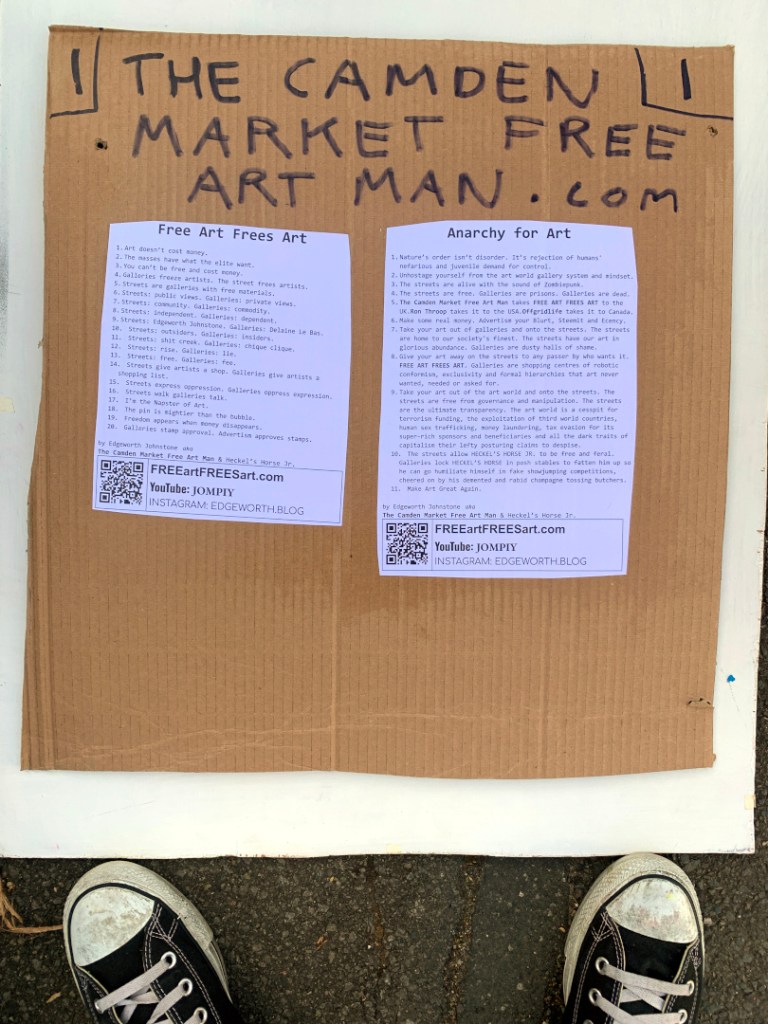 1 THE CAMDEN 1
MARKET FREE
ART MAN.com
Free Art Frees Art
1. Art doesn't cost money.
2. The masses have what the elite want.
3. You can't be free and cost money.
4. Galleries freeze artists. The street frees artists.
5. Streets are galleries with free materials.
6. Streets: public views. Galleries: private views.
7. Streets: community. Galleries: commodity.
8. Streets: independent. Galleries: dependent.
9. Streets: Edgeworth Johnstone. Galleries: Delaine Le Bas.
10. Streets: outsiders. Galleries: insiders.
11. Streets: shit creek. Galleries: chique clique.
12. Streets: rise. Galleries: lie.
13. Streets: free. Galleries: fee.
14. Streets give artists a shop. Galleries give artists a
shopping list.
15. Streets express oppression. Galleries oppress expression.
16. Streets walk galleries talk.
17. I'm the Napster of Art.
18. The pin is mightier than the bubble.
19. Freedom appears when money disappears.
20. Galleries stamp approval. Advertism approves stamps.
by Edgeworth Johnstone aka
The Camden Market Free Art Man & Heckel's Horse Jr.
FREEartFREESart.com
YouTube: JOMPIY
INSTAGRAM: EDGEWORTH.BLOG
Anarchy for Art
1. Nature's order isn't disorder. It's rejection of humans'
nefarious and juvenile demand for control.
2. Unhostage yourself from the art world gallery system and mindset.
3. The streets are alive with the sound of Zombiepunk.
4. The streets are free. Galleries are prisons. Galleries are dead.
5. The Camden Market Free Art Man takes FREE ART FREES ART to the
UK. Ron Throop takes it to the USA. Offgridlife takes it to Canada.
6. Make some real money. Advertise your Blurt, Steemit and Ecency.
7. Take your art out of galleries and onto the streets. The streets
are home to our society's finest. The streets have our art in
glorious abundance. Galleries are dusty halls of shame.
8. Give your art away on the streets to any passer by who wants it.
FREE ART FREES ART. Galleries are shopping centres of robotic
conformism, exclusivity and formal hierarchies that art never
wanted, needed or asked for.
9. Take your art out of the art world and onto the streets. The
streets are free from governance and manipulation. The streets
are the ultimate transparency. The art world is a cesspit for
terrorism funding, the exploitation of third world countries,
human sex trafficking, money laundering, tax evasion for its
super-rich sponsors and beneficiaries and all the dark traits of
capitalism their lefty posturing claims to despise.
10. The streets allow HECKEL'S HORSE JR. to be free and feral.
Galleries lock HECKEL'S HORSE in posh stables to fatten him up so
he can go humiliate himself in fake showjumping competitions,
cheered on by his demented and rabid champagne tossing butchers.
11. Make Art Great Again.
by Edgeworth Johnstone aka
The Camden Market Free Art Man & Heckel's Horse Jr.
FREEartFREESart.com
YouTube: JOMPIY
INSTAGRAM: EDGEWORTH.BLOG